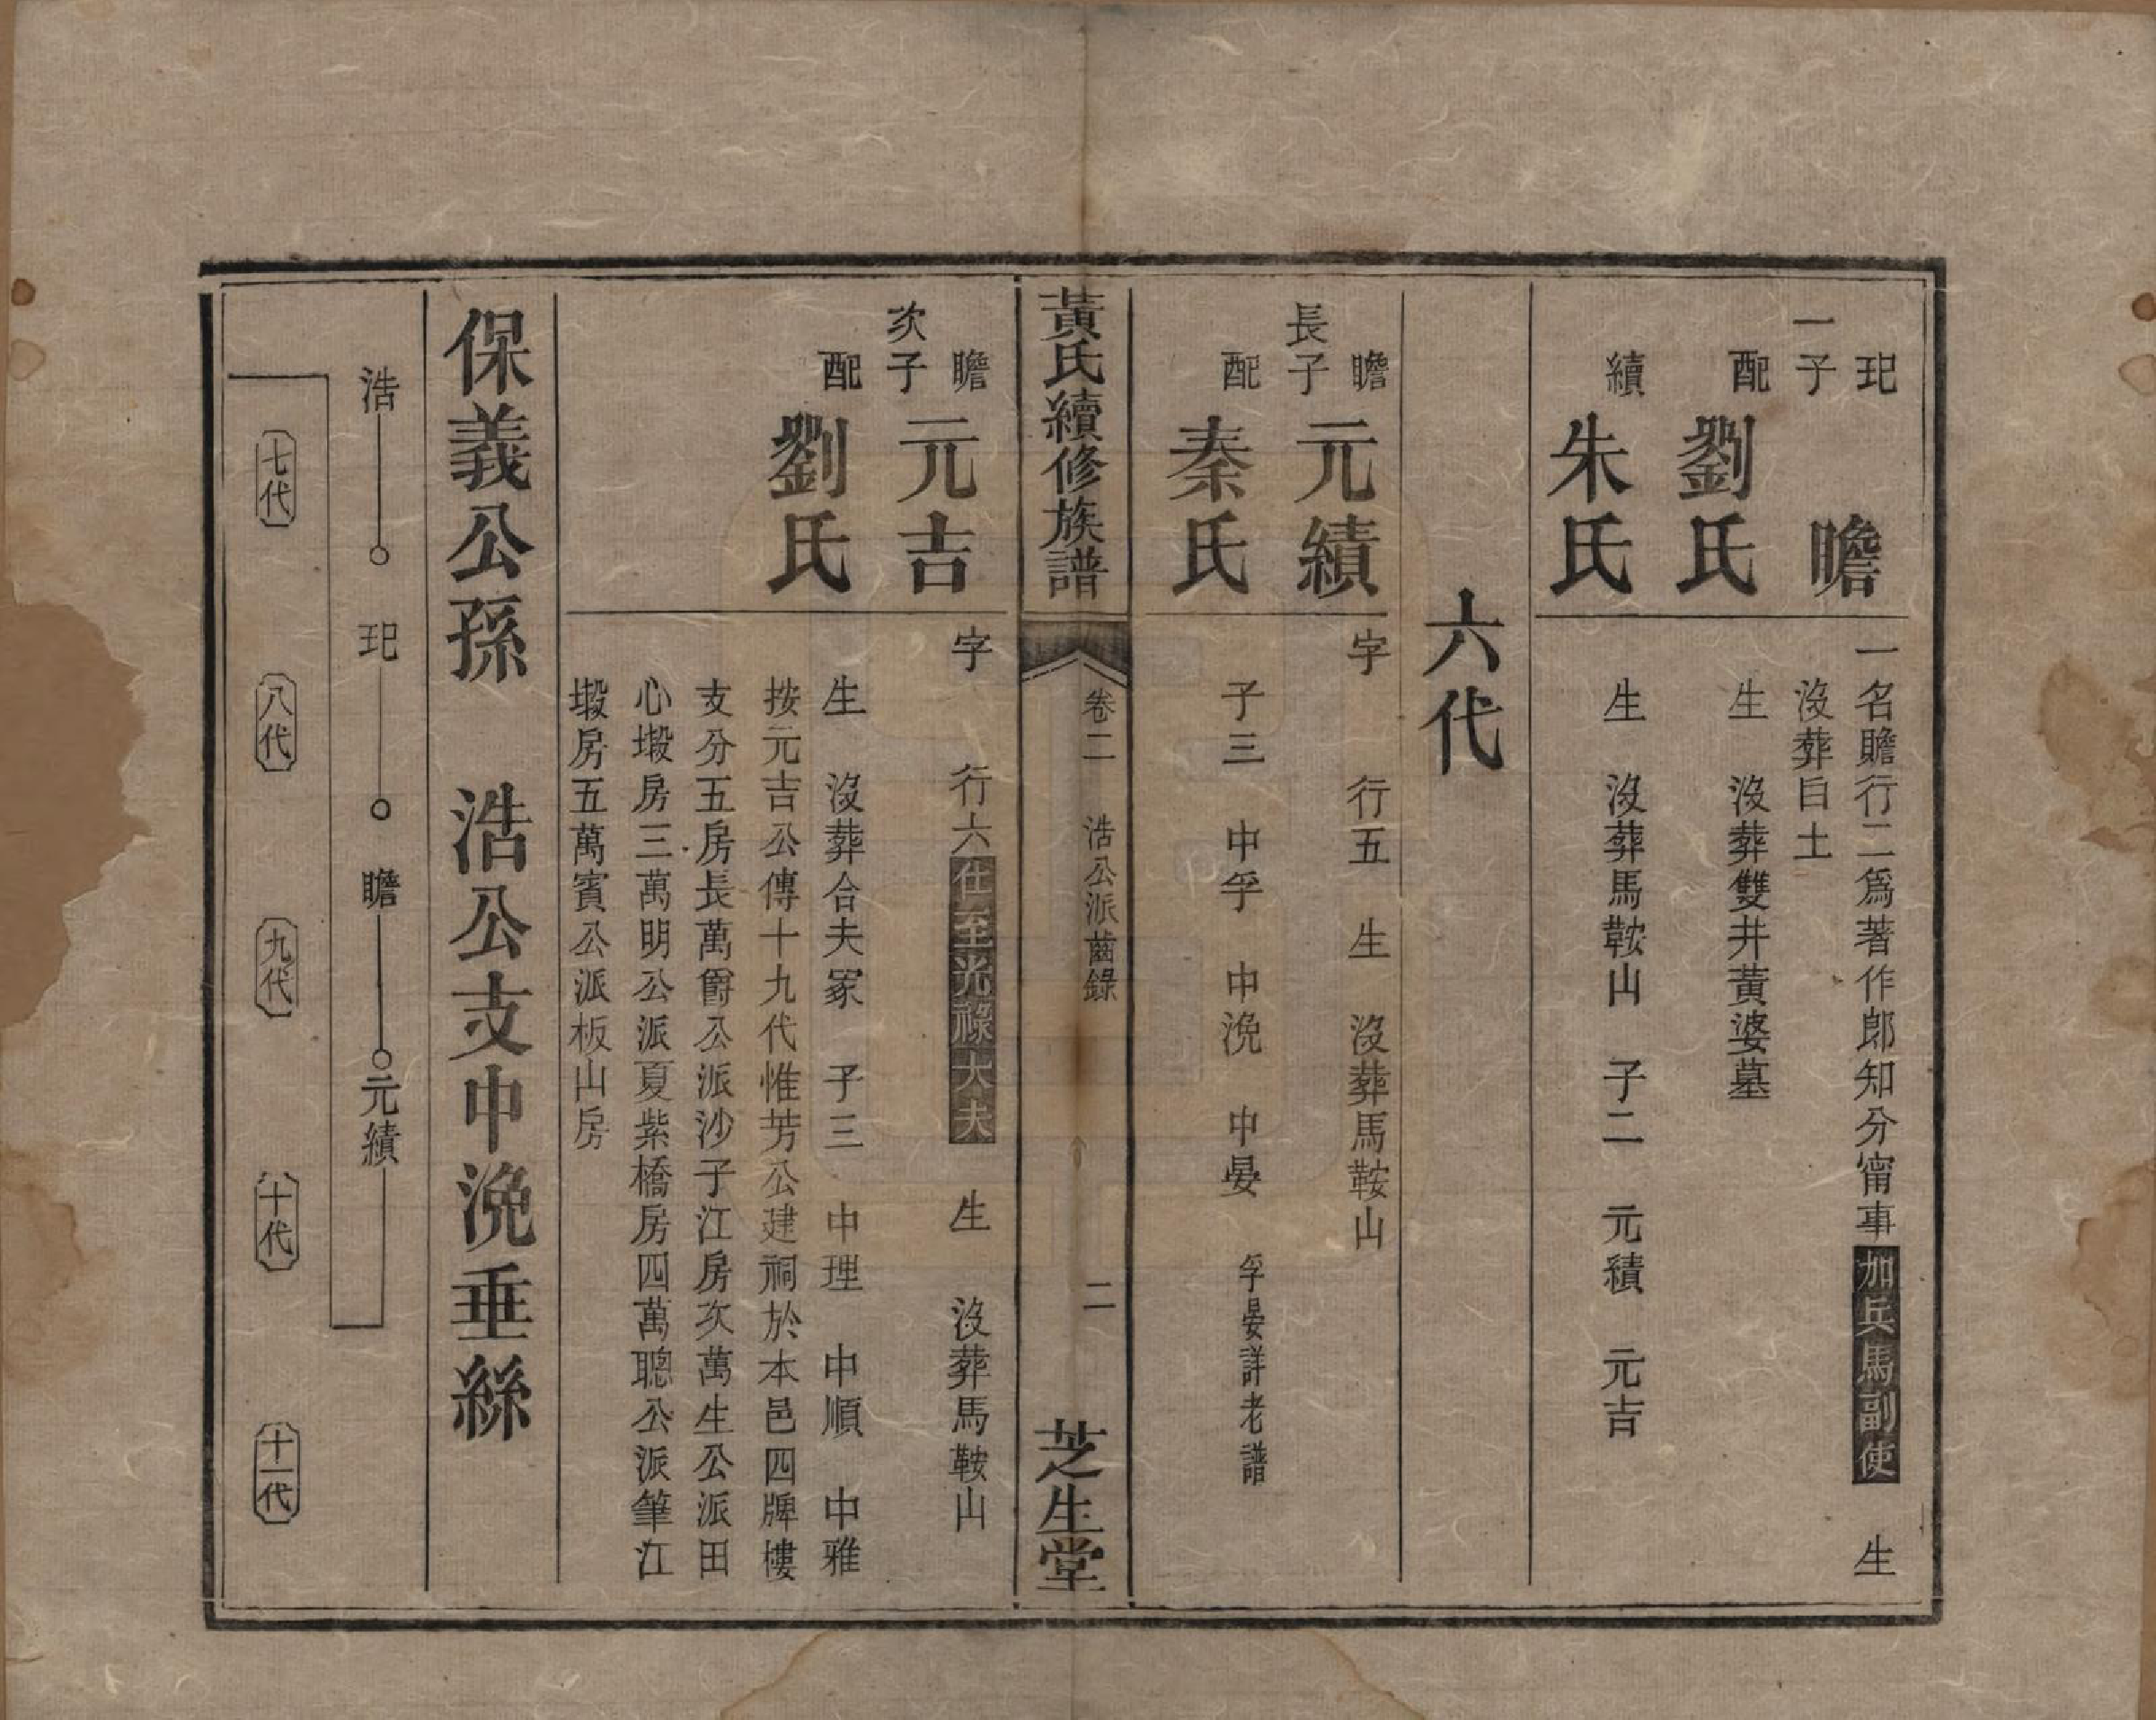 玘
一子
瞻
一名贍行二爲著作郎知分甯事加兵馬副使 生
沒葬自土
配
劉氏
生 沒葬雙井黃婆墓
續
朱氏
生 沒葬馬鞍山 子二 元績 元吉
六代
瞻
長子
元績
字 行五 生 沒葬馬鞍山
配
秦氏
子三 中孚 中浼 中晏 孚晏詳老譜
黃氏續修族譜
卷二 浩公派齒錄 二
芝生堂
瞻
次子
元吉
字 行六仕至光祿大夫 生 沒葬馬鞍山
配
劉氏
生 沒葬合夫冢 子三 中理 中順 中雅
按元吉公傳十九代惟芳公建祠於本邑四牌樓
支分五房長萬爵公派沙子江房次萬生公派田
心塅房三萬明公派夏紫橋房四萬聰公派筆江
塅房五萬賓公派板山房
保義公孫 浩公支中浼垂絲
浩 玘 瞻 元績
七代 八代 九代 十代 十一代